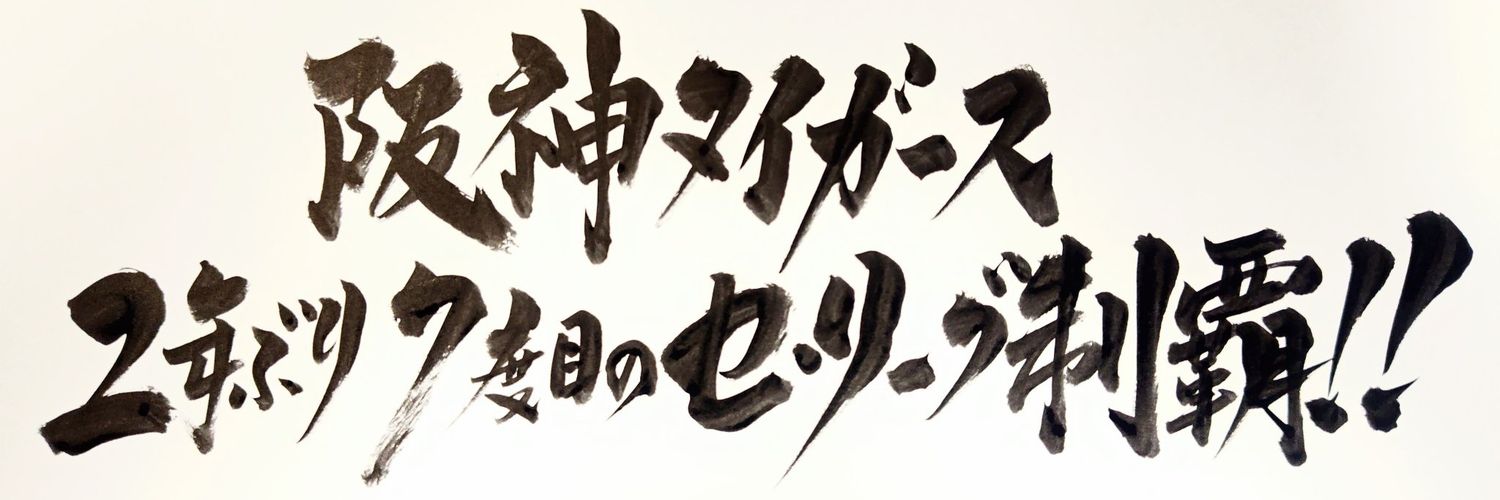 阪神タイガース
2年ぶり7度目のセ・リーグ制覇!!